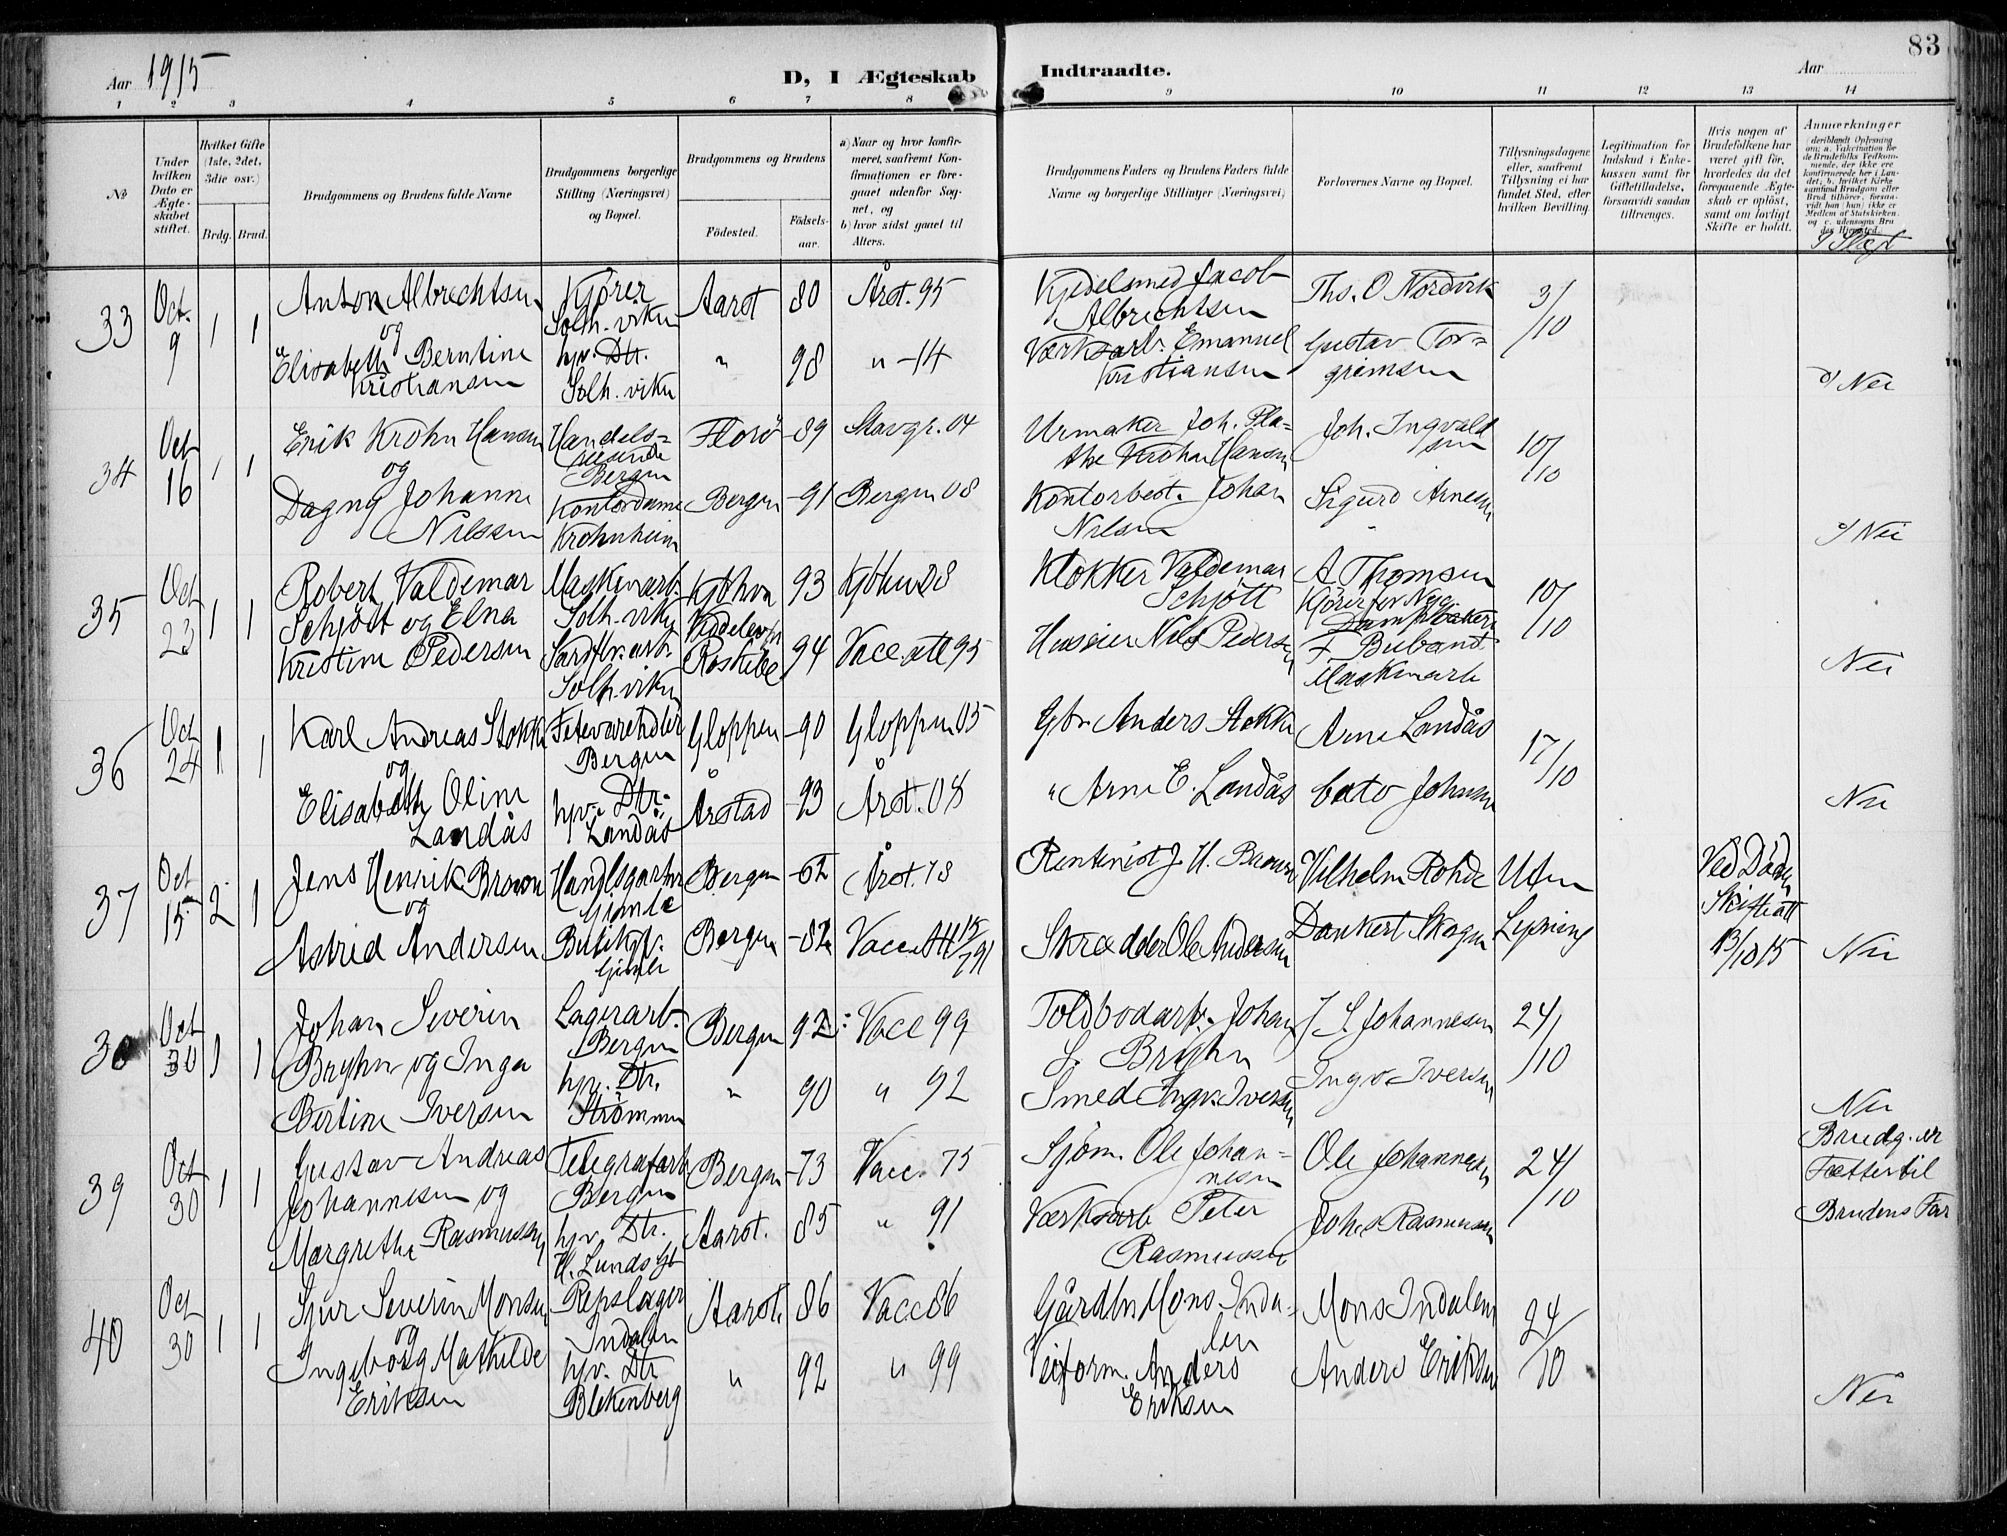 83
Aar 1915
D, I Ægteskab Indtraadte.
Aar
1 2 3 4 5 6 7 8 9 10 11 12 13 14
No
Under hvilken Dato er Ægteskabet stiftet.
Hvilket Gifte (1ste, 2det, 3die osv.)
Brdg. Brud.
Brudgommens og Brudens fulde Navne
Brudgommens borgerlige Stilling (Næringsvei) og Bopæl.
Brudgommens og Brudens
Födested. Födsels-aar.
a) Naar og hvor konfirmeret, saafremt Konfirmationen er foregaaet udenfor Sognet, og
b) hvor sidst gaaet til Alters.
Brudgommens Faders og Brudens Faders fulde Navne og borgerlige Stillinger (Næringsvei)
Forlovernes Navne og Bopæl.
Tillysningsdagene eller, saafremt Tillysning ei har fundet Sted, efter hvilken Bevilling.
Legitimation for Indskud i Enkekassen samt for Giftetilladelse, forsaavidt saadan tiltrænges.
Hvis nogen af Brudefolkene har været gift før, hvorledes da det foregaaende Ægteskab er oplöst, samt om lovligt Skifte er holdt.
Anmærkninger
33 Oct. 9 1 1
Anton Albrechtsen og
Kjører Solh.viken
Aarst 80 Årst. 95
Kjedelsmed Jacob Albrechtsen
Ths. O Nordvik
3/10
Elisabeth Berntine Kristiansen
hjv. Dtr. Solh.viken
" 98 " -14
Værksarb. Emanuel Kristiansen
Gustav Torgrimsen
Nei
34 Oct 16 1 1
Erik Krohn Hansen og
Handelsreisende Bergen
Florö -89 Stavgr. 04
Urmaker Joh. Plathe Krohn Hansen
Joh. Ingvaldsen
10/10
Dagny Johanne Nilssen
Kontordame Krohnheim
Bergen -91 Bergen 08
Kontorbest. Johan Nilsen
Sigurd Arnesen
Nei
35 Oct 23 1 1
Robert Valdemar Schjött og Elna Kristine Pedersen
Maskinarb. Solh.viken
Kjöhvn 93
Klokker Valdemar Schjött
A Thomsen
10/10
Solh.viken
Roskilde 94 Vacc. att 95
Huseier Nils Pedersen
Maskinarb
Nei
36 Oct 24 1 1
Karl Andreas Stokke og
Fetevarehdler Bergen
Gloppen -90 Gloppen 05
Gbr. Anders Stokke
Arne Landås
17/10
Elisabeth Oline Landås
hjv. Dtr. Landås
Årstad -93 Årst. 08
" Arne E. Landås
Cato Johnsen
Nei
37 Oct 15 2 1
Jens Henrik Brown og
Handlsgartner Gimle
Bergen -62 Årst. 78
Rentenist J. H. Brown
Vilhelm Rohde
Uten Lysning
Ved Døden Skifteatt 13/10 15
Astrid Andersen
Gimle
Bergen -82
Skrædder Ole Andersen
Dankert Skogen
Nei
38 Oct 30 1 1
Johan Severin Bryhn og Inga Bertine Iversen
Lagerarb. Bergen
Bergen 92 Vacc 99
Toldbodarb. Johan S. Bryhn
J S. Johannesen
24/10
hjv. Dtr. Strømmen
" 90 " 92
Smed Ingv. Iversen
Ingv Iversen
Nei
39 Oct 30 1 1
Gustav Andreas Johannesen og
Telegrafarb Bergen
Bergen -73 Vacc. 75
Sjøm. Ole Johannesen
Ole Johannesen
24/10
Brudg. er Fætter til Brudens Far
Margrethe Rasmussen
hjv. Dtr. H. Lunds gt
Aarst. 85 " 91
Værksarb Peter Rasmussen
Johs Rasmussen
40 Oct 30 1 1
Sjur Severin Monsen og
Repslager Indalen
Aarst. 86 Vacc 86
Gårdbr. Mons Indalen
Mons Indalen
24/10
Ingeborg Mathilde Eriksen
hjv. Dtr Blekenberg
" 92 " 99
Veiform. Anders Eriksen
Anders Eriksen
Nei